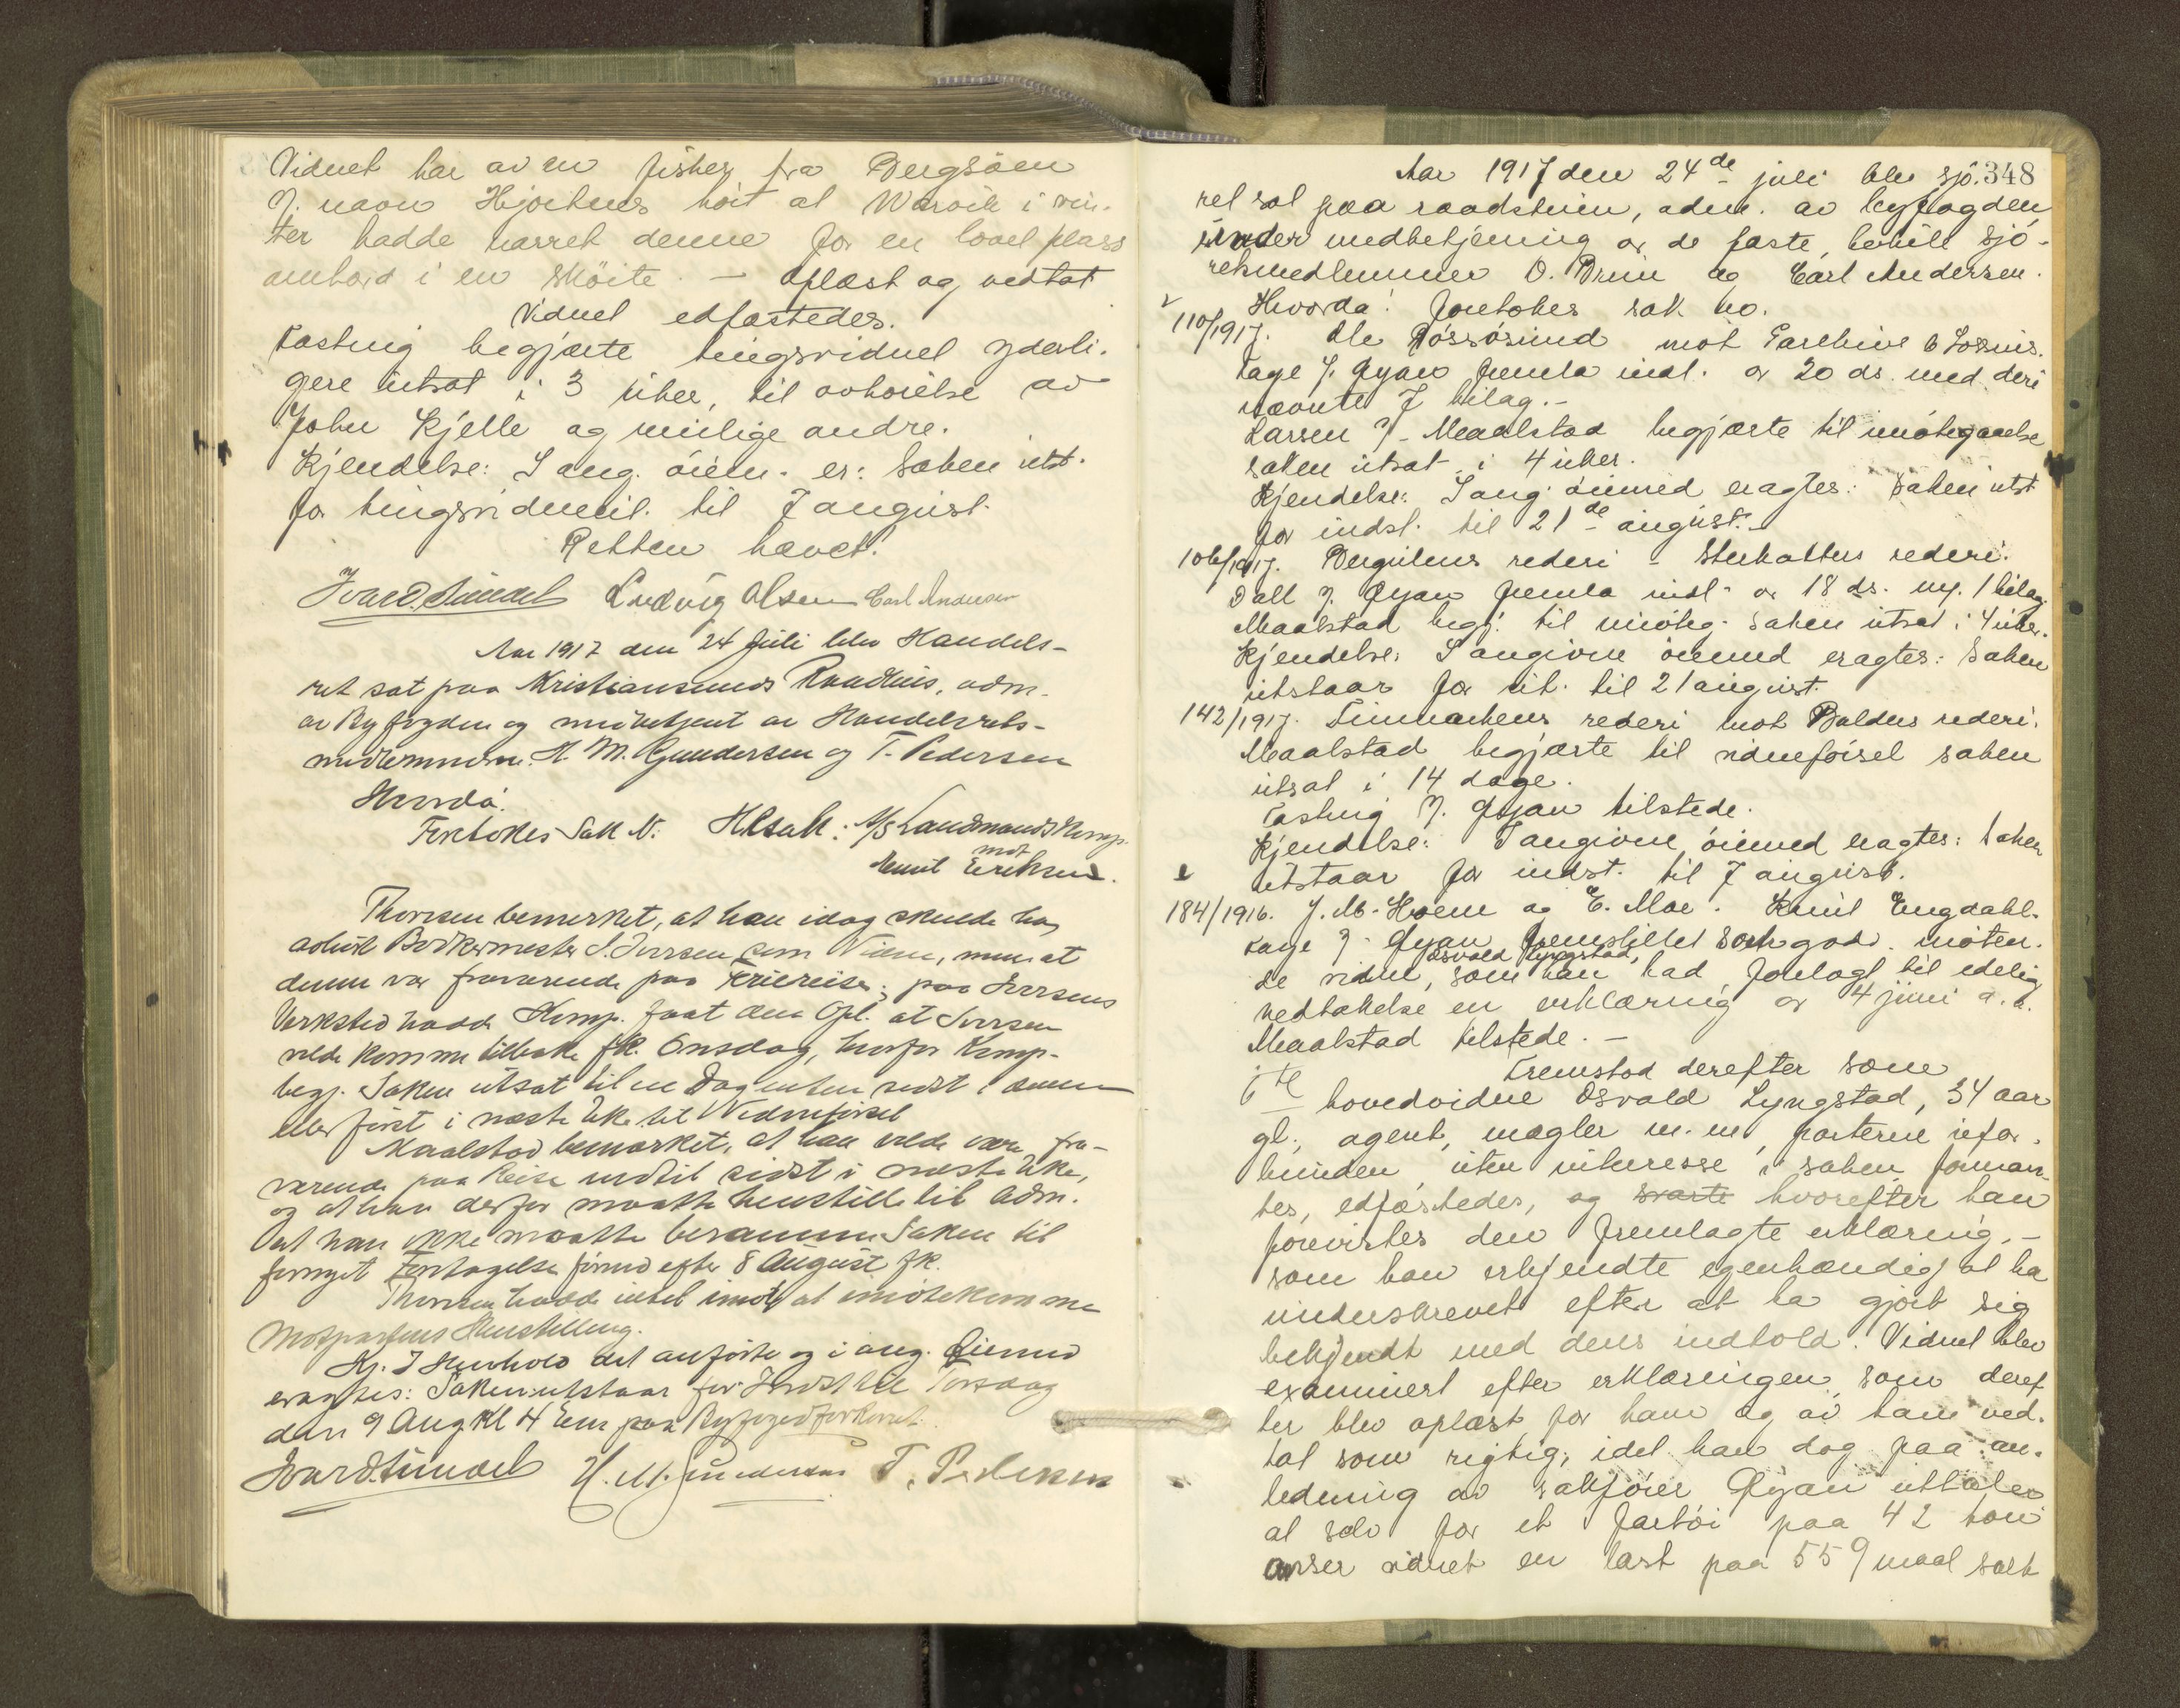 Vidnet har av en fisker fra Bergsöen
v. navn Hjorthus hört at Warvik i vin-
ter hadde narret denne for en lovet plass
ombord i en sköite. — Oplæst og vedtat
Vidnet edfæstedes.
Tastvig begjærte tingsvidnet yderli-
gere utsat i 3 uker, til avhörelse av
John Kjelle og mulige andre.
Kjendelse: I ang. öiem. er: Saken utst.
for tingsvidneut. til 7 august.
Retten hævet.
Ivar D. Sundel Ludvig Olsen Carl Andersen
Aar 1917 den 24 Juli blev Handels-
ret sat paa Kristiansunds Raadhus, adm.
av Byfogden og meddbetjent av Handelsrets-
medlemmerne H. M. Gundersen og T. Pedersen
Hvorda:
Foretokes Sak N: H.R.sak: A/S Landmands Komp.
mot
Knut Eriksen.
Thoresen bemerket, at han idag skulde ha
avhört Bödkermester S. Iversen som Vidne, men at
denne var fraværende paa Feriereise; paa Iversens
Verksted hadde Komp. faat den Opl. at Iversen
vilde komme tilbake fk. Onsdag, hvorfor Komp.
begj. Saken utsat til en Dag enten sidst i denne
eller först i næste Uke til Vidneförsel
Maalstad bemærket, at han vilde være fra-
værende paa Reise indtil sidst i næste Uke,
og at han derfor maatte henstille til Adm.
at han ikke maatte beramme Saken til
fornyet Foretagelse förend efter 8 August fk.
Thoresen hadde intet imot at imötekomme
Motpartens Henstilling.
Kj. I Henhold det anförte og i ang. Öiemed
eragtes: Saken utstaar for Indst til Torsdag
den 9 Aug Kl 4 Em paa Byfogedkontoret.
Ivar D. Sundel H. M. Gundersen T. Pedersen
348
Aar 1917 den 24de juli blev sjö-
ret sat paa raadstuen, adm. av byfogden
under medbetjening av de faste, beskik. sjö-
retsmedlemmer O. Bruun og Carl Andersen.
Hvorda: foretokes sak no.
110/1917. Ole Rössösund mot Parelius & Lossius.
Tage f. Gyan fremla indl. av 20 ds. med deri
nævnte 7 bilag.-
Larsen f. Maalstad begjærte til imötegaaelse
saken utsat i 4 uker.
Kjendelse: I ang. öiemed eragtes: Saken utst
for indst. til 21de august.-
106/1917. Bergulens rederi - Sterkoders rederi.
Dall f. Gyan fremla indl. av 18 ds. m. 1 bilag
Maalstad begj. til imöteg. saken utsat i 4 uker.
Kjendelse: I angivne öiemed eragtes: Saken
utstaar for ut. til 21 august.
142/1917. Finmarkens rederi mot Balders rederi.
Maalstad begjærte til vidneförsel saken
utsat i 14 dage.
Tastvig f. Gyan tilstede.
Kjendelse: I angivne öiemed eragtes: Saken
utstaar for indst. til 7 august.
184/1916. J. M. Hoem og E. Moe. Knut Engdahl.
Tage f. Gyan fremstillet som godv. möten-
Osvald Lyngstad,
de vidne, som han had forelagt til edelig
vedtakelse en erklæring av 4 juni d. a.
Maalstad tilstede. -
Fremstod derefter som
6te hovedvidne Osvald Lyngstad, 34 aar
gl., agent, mægler m. m, parterne ufor-
bunden uten interesse i saken, forman-
tes, edfæstedes, og svarte hvorefter han
forevistes den fremlagte erklæring, -
som han erkjendte egenhændig at ha
underskrevet efter at ha gjort sig
bekjendt med dens indhold. Vidnet blev
examinert efter erklæringen, som deref-
ter blev oplæst for ham og av ham ved-
tat som rigtig, idet han dog paa an-
ledning av sakförer Gyan uttaler
at selv for et fartöi paa 42 ton
anser vidnet en last paa 559 maal salt